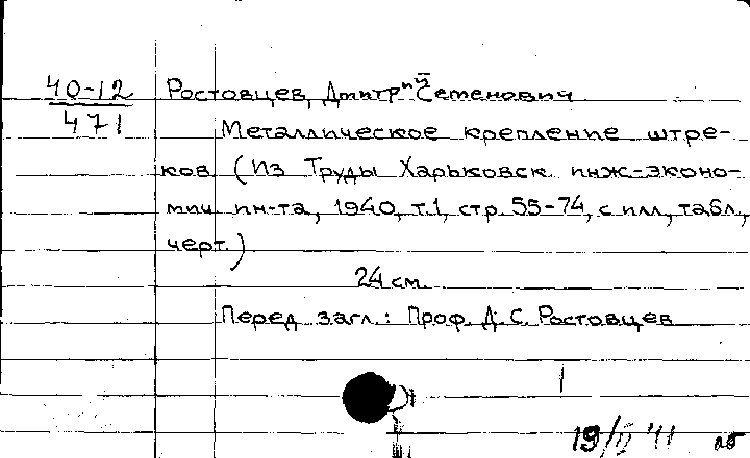 40-12
471
Ростовцев, Дмитрий Семенович
Металлическое крепление штре-
ков. (Из Труды Харьковск. инж-эконо-
мич. ин-та, 1940, т.1, стр. 55-74, с илл., табл.,
черт.)
24 см.
Перед загл.: Проф. Д. С. Ростовцев
19/II 41